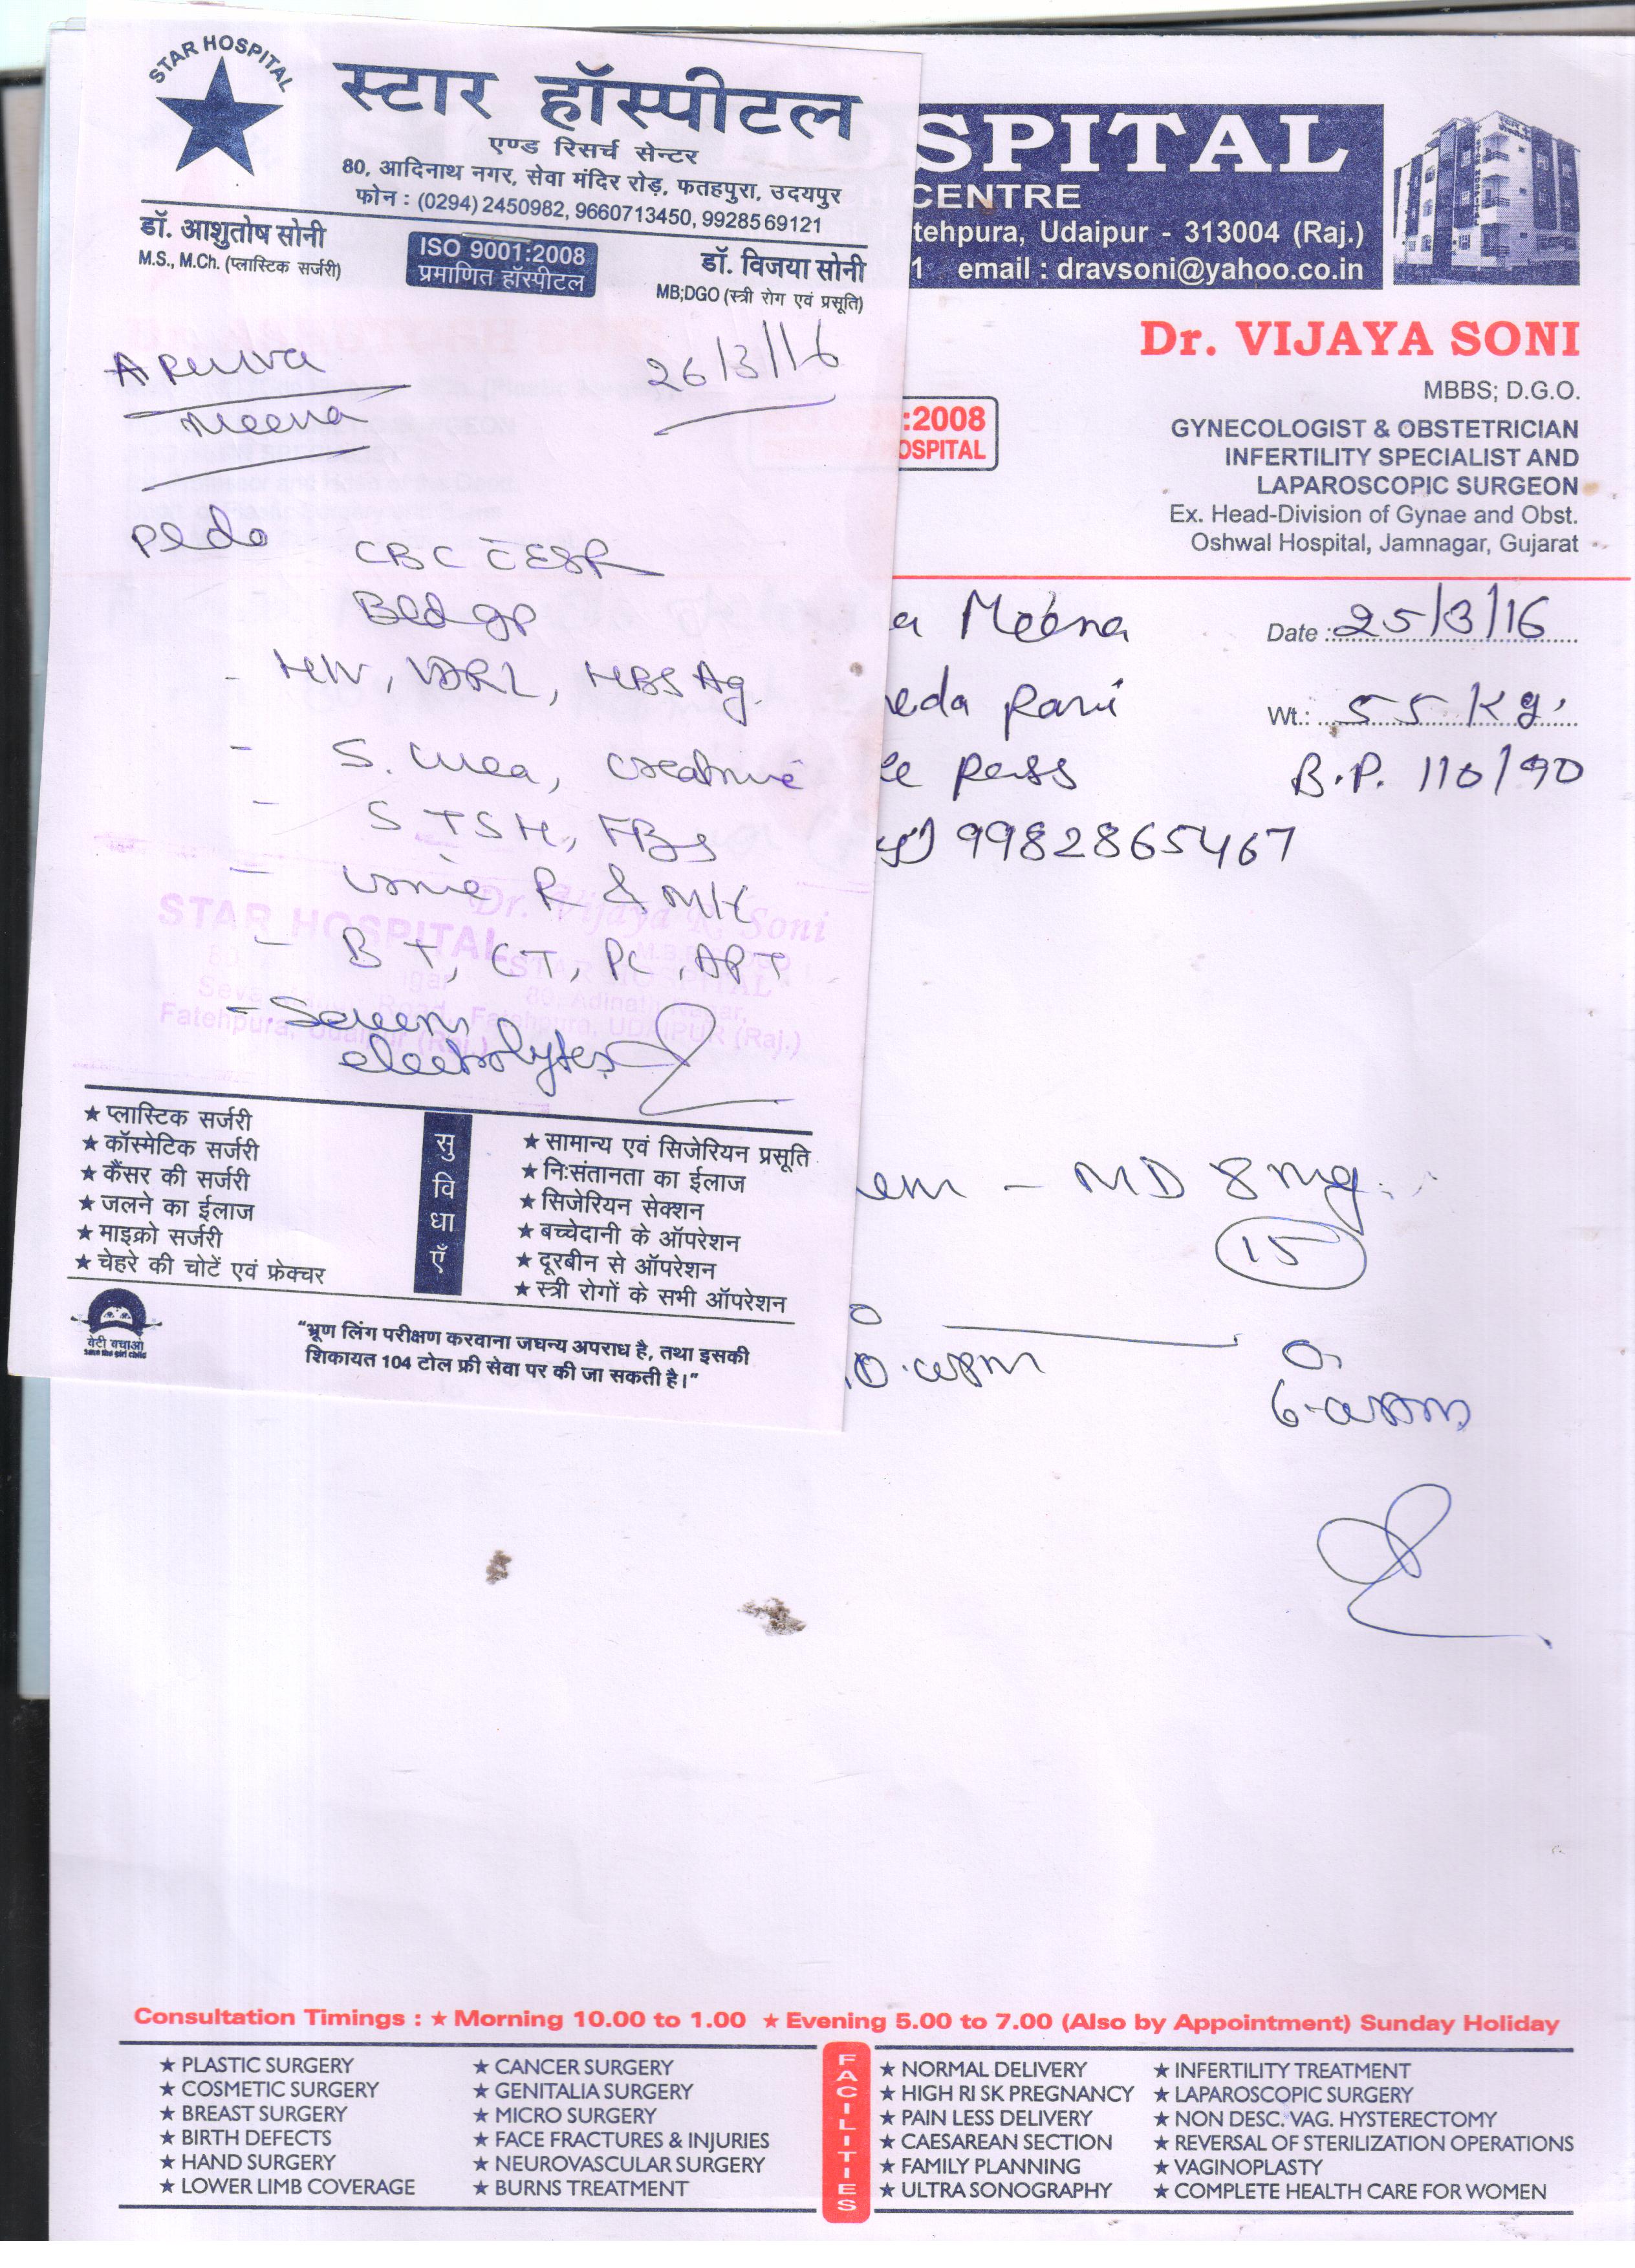 STAR HOSPITAL
स्टार हॉस्पीटल
एण्ड रिसर्च सेन्टर
80, आदिनाथ नगर, सेवा मंदिर रोड़, फतहपुरा, उदयपुर
फोन : (0294) 2450982, 9660713450, 9928569121
डॉ. आशुतोष सोनी
M.S., M.Ch. (प्लास्टिक सर्जरी)
ISO 9001:2008
प्रमाणित हॉस्पीटल
डॉ. विजया सोनी
MB;DGO (स्त्री रोग एवं प्रसूति)
Apurva
Meena
26/3/16
CBC C ESR
Bld gp
- HIV, VDRL, HBSAg.
- S. Urea, Creatinine
- S TSH, FBS
- Urine R & M/E
- BT, CT, PC, APT
- Serum
electrolytes
STAR HOSPITAL
Fatehpura, Udaipur (Raj.)
Dr. Vijaya R. Soni
STAR HOSPITAL
80, Adinath Nagar,
Fatehpura, UDAIPUR (Raj.)
★ प्लास्टिक सर्जरी
★ कॉस्मेटिक सर्जरी
★ कैंसर की सर्जरी
★ जलने का ईलाज
★ माइक्रो सर्जरी
★ चेहरे की चोटें एवं फ्रेक्चर
सुविधाएँ
★ सामान्य एवं सिजेरियन प्रसूति
★ निःसंतानता का ईलाज
★ सिजेरियन सेक्शन
★ बच्चेदानी के ऑपरेशन
★ दूरबीन से ऑपरेशन
★ स्त्री रोगों के सभी ऑपरेशन
बेटी बचाओ
Save the girl child
“भ्रूण लिंग परीक्षण करवाना जघन्य अपराध है, तथा इसकी
शिकायत 104 टोल फ्री सेवा पर की जा सकती है।”
SPITAL
CENTRE
tehpura, Udaipur - 313004 (Raj.)
1 email : dravsoni@yahoo.co.in
:2008
OSPITAL
Dr. VIJAYA SONI
MBBS; D.G.O.
GYNECOLOGIST & OBSTETRICIAN
INFERTILITY SPECIALIST AND
LAPAROSCOPIC SURGEON
Ex. Head-Division of Gynae and Obst.
Oshwal Hospital, Jamnagar, Gujarat
a Meena Date : 25/3/16
eda Rani Wt.: 55 Kg.
B.P. 110/90
9982865467
em - MD 8 mg.
15
Consultation Timings : ★ Morning 10.00 to 1.00 ★ Evening 5.00 to 7.00 (Also by Appointment) Sunday Holiday
★ PLASTIC SURGERY
★ COSMETIC SURGERY
★ BREAST SURGERY
★ BIRTH DEFECTS
★ HAND SURGERY
★ LOWER LIMB COVERAGE
★ CANCER SURGERY
★ GENITALIA SURGERY
★ MICRO SURGERY
★ FACE FRACTURES & INJURIES
★ NEUROVASCULAR SURGERY
★ BURNS TREATMENT
FACILITIES
★ NORMAL DELIVERY
★ HIGH RI SK PREGNANCY
★ PAIN LESS DELIVERY
★ CAESAREAN SECTION
★ FAMILY PLANNING
★ ULTRA SONOGRAPHY
★ INFERTILITY TREATMENT
★ LAPAROSCOPIC SURGERY
★ NON DESC. VAG. HYSTERECTOMY
★ REVERSAL OF STERILIZATION OPERATIONS
★ VAGINOPLASTY
★ COMPLETE HEALTH CARE FOR WOMEN